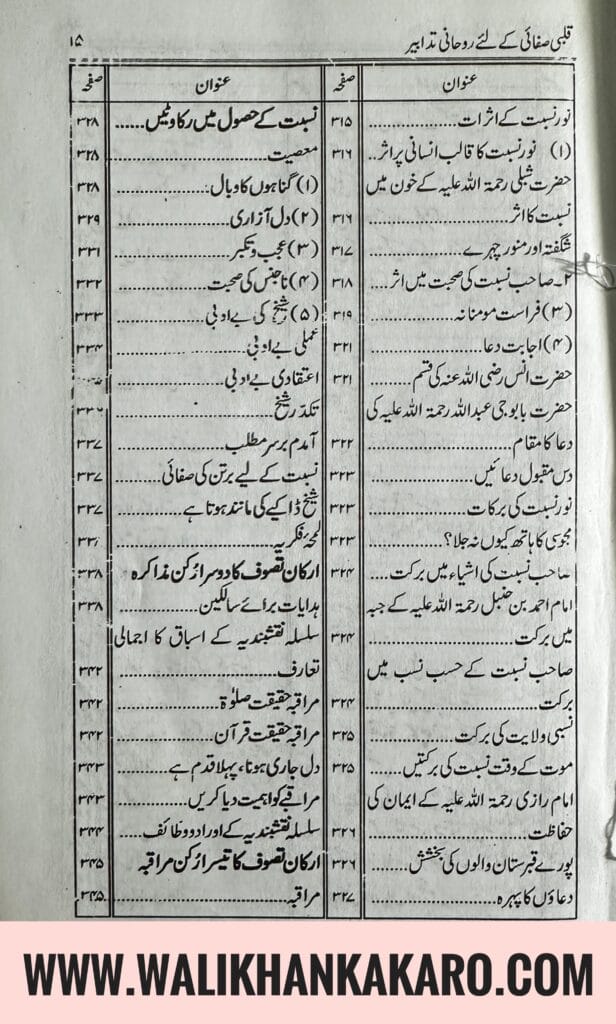 قلبی صفائی کے لئے روحانی تدابیر ۱۵
عنوان صفحہ
نور نسبت کے اثرات.................. ۳۱۵
(۱) نور نسبت کا قالب انسانی پر اثر.. ۳۱۶
حضرت شبلی رحمۃ اللہ علیہ کے خون میں
نسبت کا اثر.................. ۳۱۶
شگفتہ اور منور چہرے.................. ۳۱۷
۲۔ صاحب نسبت کی صحبت میں اثر... ۳۱۸
(۳) فراست مومنانہ.................. ۳۱۹
(۴) اجابت دعا.................. ۳۲۱
حضرت انس رضی اللہ عنہ کی قسم.......... ۳۲۱
حضرت بابوجی عبداللہ رحمۃ اللہ علیہ کی
دعا کا مقام.................. ۳۲۲
دس مقبول دعائیں.................. ۳۲۳
نور نسبت کی برکات.................. ۳۲۳
مجوسی کا ہاتھ کیوں نہ جلا؟.................. ۳۲۳
صاحب نسبت کی اشیاء میں برکت..... ۳۲۴
امام احمد بن حنبل رحمۃ اللہ علیہ کے جبہ
میں برکت.................. ۳۲۴
صاحب نسبت کے حسب نسب میں
برکت.................. ۳۲۴
نسبی ولایت کی برکت.................. ۳۲۵
موت کے وقت نسبت کی برکتیں........ ۳۲۵
امام رازی رحمۃ اللہ علیہ کے ایمان کی
حفاظت.................. ۳۲۶
پورے قبرستان والوں کی بخشش........ ۳۲۶
دعاؤں کا پہرہ.................. ۳۲۷
عنوان صفحہ
نسبت کے حصول میں رکاوٹیں...... ۳۲۸
معصیت.................. ۳۲۸
(۱) گناہوں کا وبال.................. ۳۲۸
(۲) دل آزاری.................. ۳۲۹
(۳) عجب و تکبر.................. ۳۳۱
(۴) ناجنس کی صحبت.................. ۳۳۲
(۵) شیخ کی بے ادبی.................. ۳۳۳
عملی بے ادبی.................. ۳۳۴
اعتقادی بے ادبی..................
تکدر شیخ.................. ۳۳۶
آمدم برسر مطلب.................. ۳۳۷
نسبت کے لیے برتن کی صفائی.......... ۳۳۷
شیخ ڈاکیے کی مانند ہوتا ہے.......... ۳۳۷
لمحۂ فکریہ..................
ارکان تصوف کا دوسرا رکن مذاکرہ ۳۳۸
ہدایات برائے سالکین.................. ۳۳۸
سلسلہ نقشبندیہ کے اسباق کا اجمالی
تعارف.................. ۳۴۲
مراقبہ حقیقت صلوٰۃ.................. ۳۴۲
مراقبہ حقیقت قرآن.................. ۳۴۲
دل جاری ہونا، پہلا قدم ہے.......... ۳۴۳
مراقبے کو اہمیت دیا کریں.......... ۳۴۳
سلسلہ نقشبندیہ کے اوراد و وظائف..... ۳۴۴
ارکان تصوف کا تیسرا رکن مراقبہ ۳۴۵
مراقبہ.................. ۳۴۵
WWW.WALIKHANKAKARO.COM